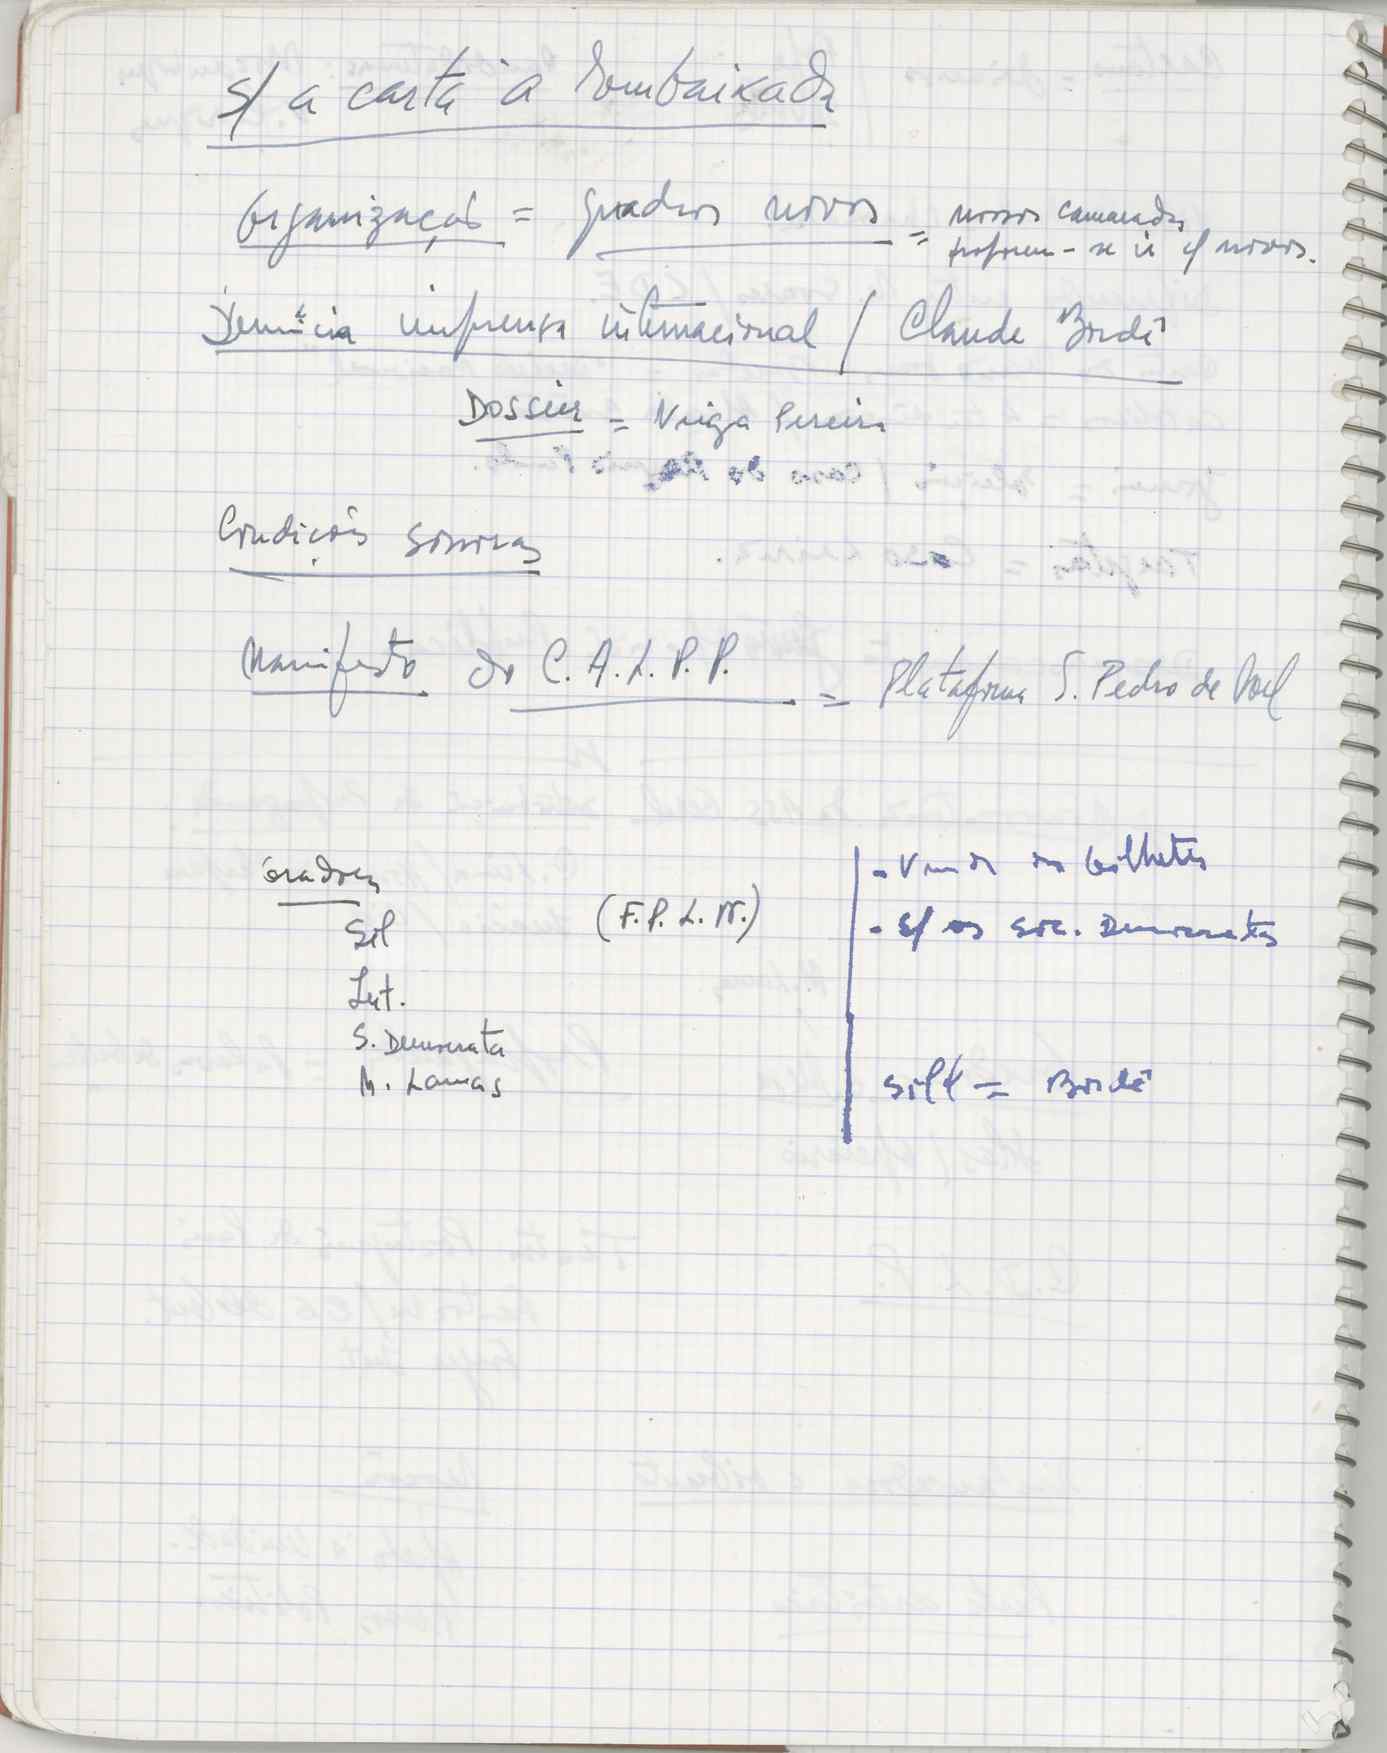 s/ a carta à Embaixada
Organização = quadros novos = nossos camaradas
propoem-se ir p/ novos.
Denúncia imprensa internacional / Claude Bordé
Dossier = Veiga Pereira
Condições sonoras
Manifesto do C.A.L.P.P. = Plataforma S. Pedro de Moel
oradores
Sil
(F.P.L.N.)
Int.
S. Democrata
M. Lamas
- Vender os bilhetes
- s/ os soc. Democratas
= Bordé